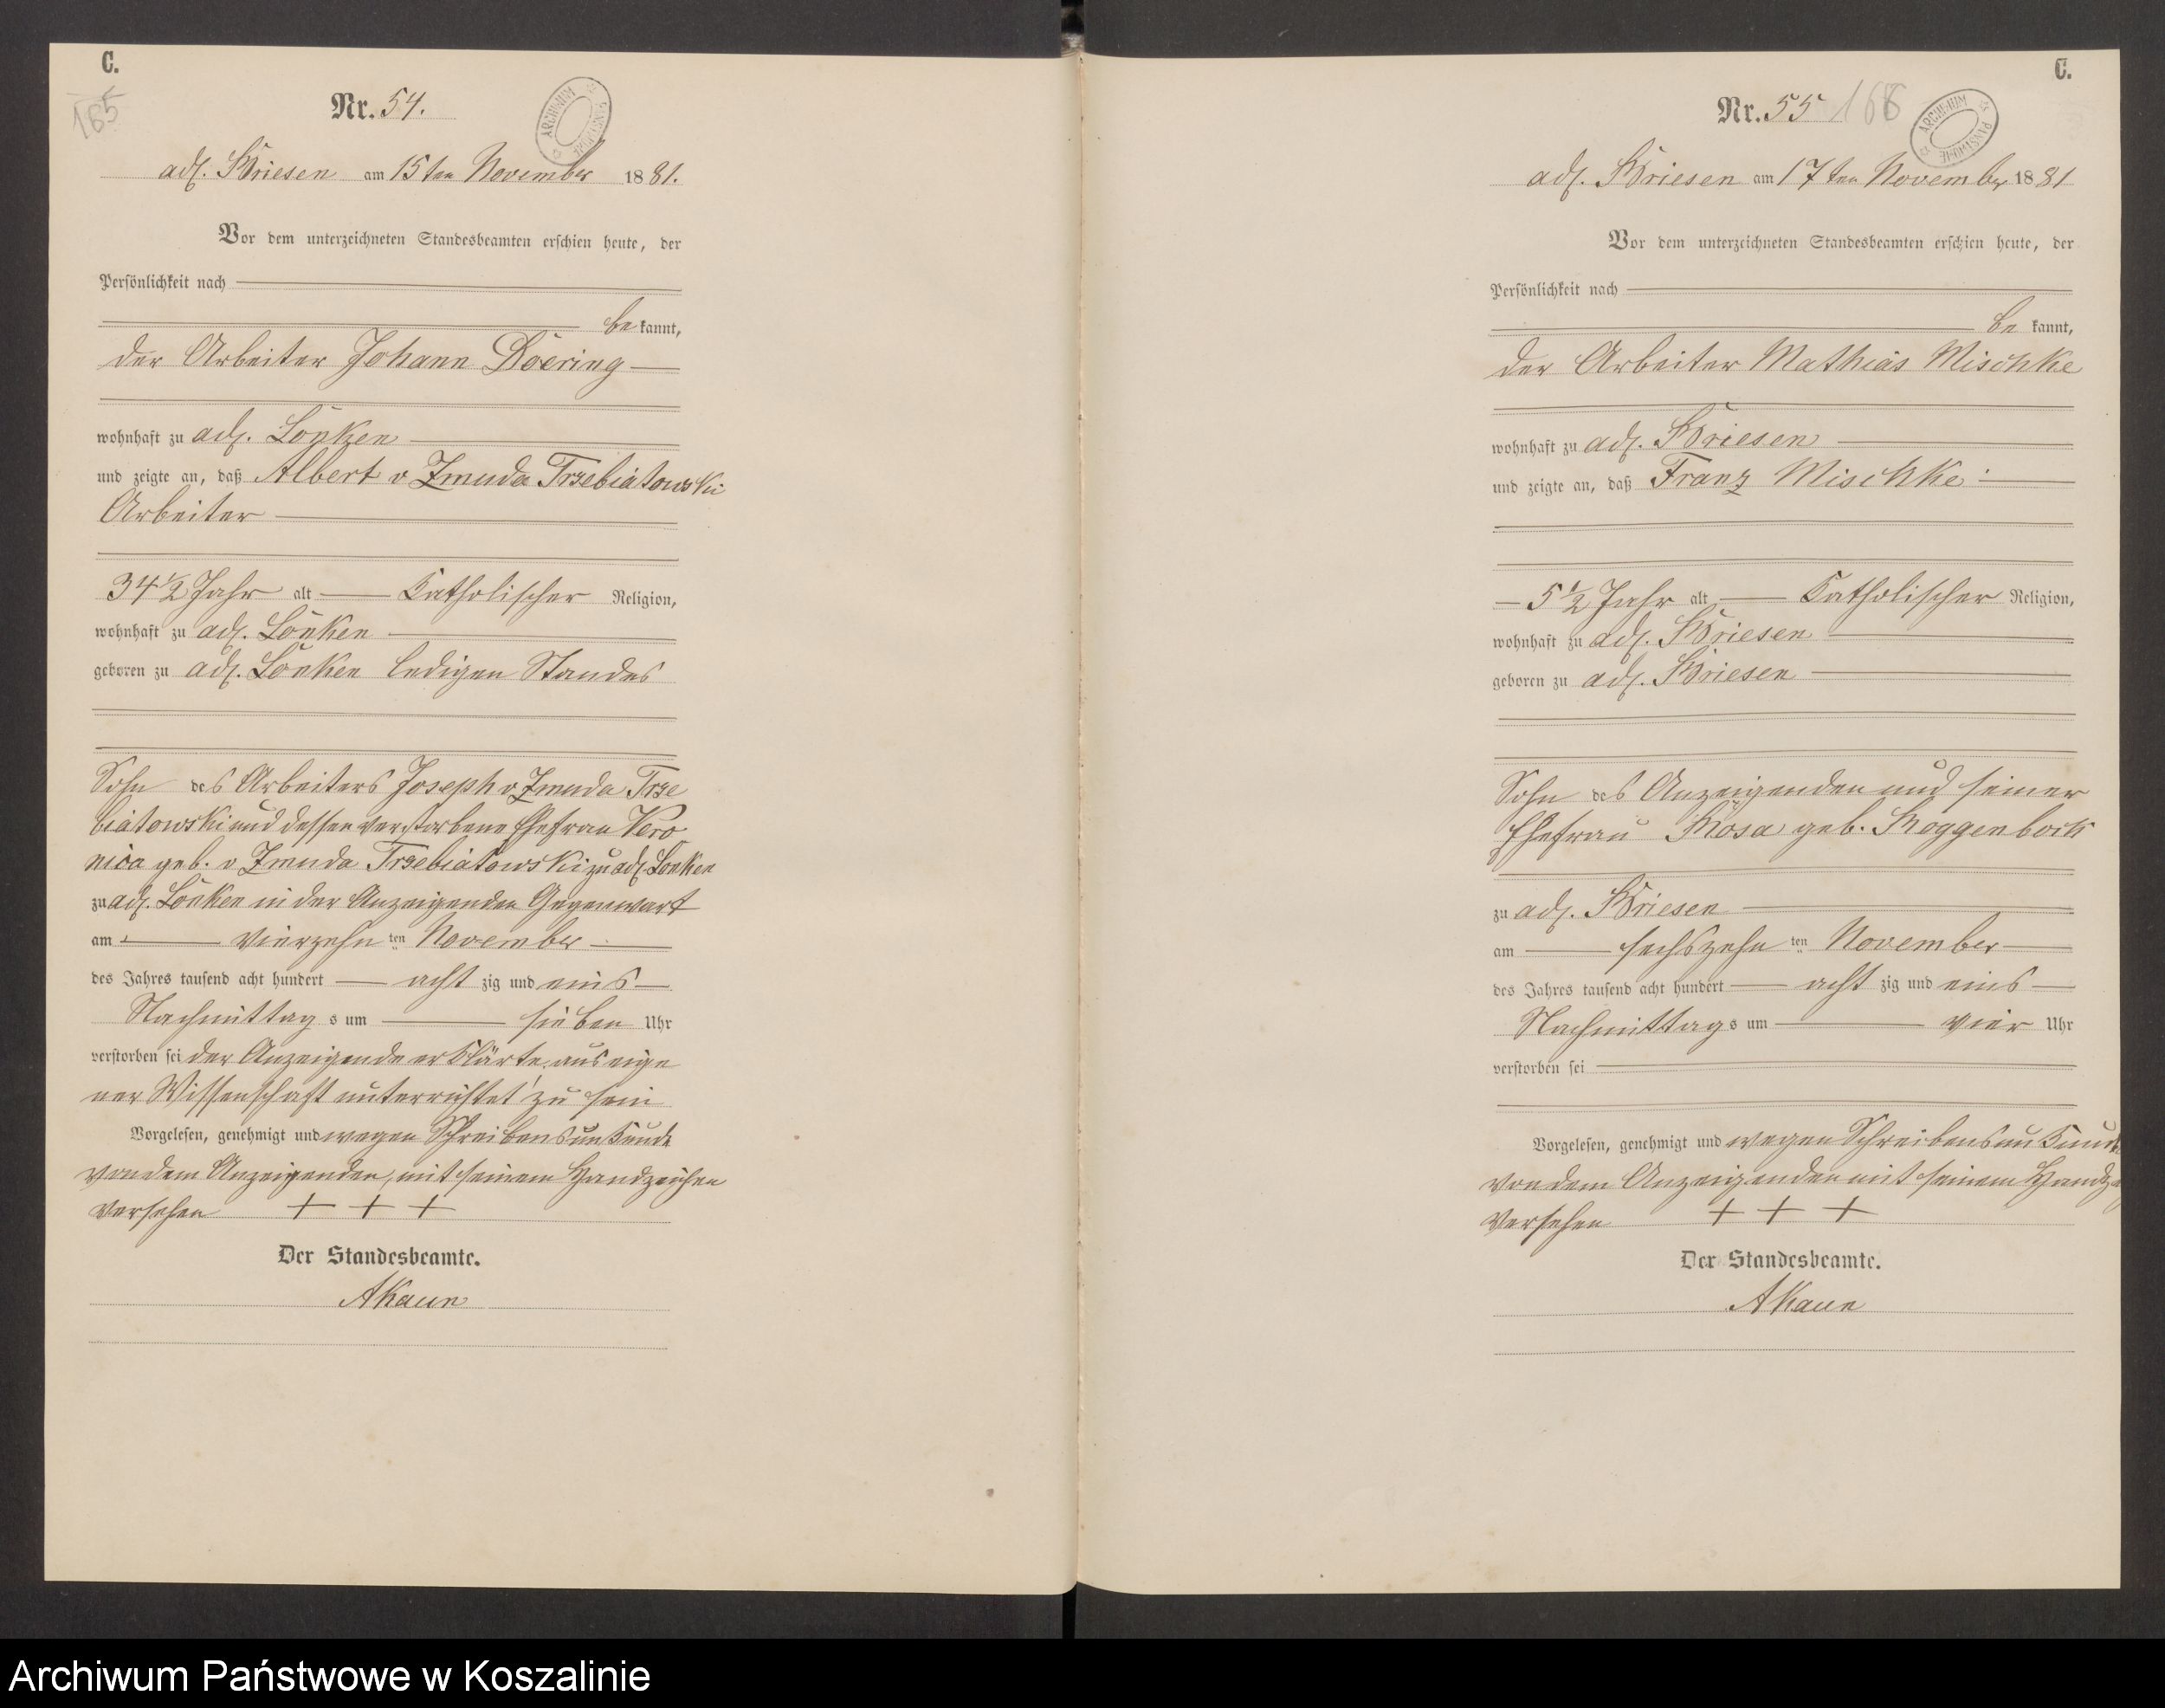 C.
165
Nr. 54.
ARCHIWUM PAŃSTWOWE
adl. Briesen am 15ten November 1881.
Vor dem unterzeichneten Standesbeamten erschien heute, der
Persönlichkeit nach
be kannt,
der Arbeiter Johann Döering
wohnhaft zu adl. Lonken
und zeigte an, daß Albert v Zmuda Trzebiatowski
Arbeiter
34 1/2 Jahr alt Katholischer Religion,
wohnhaft zu adl. Lonken
geboren zu adl. Lonken ledigen Standes
Sohn des Arbeiters Joseph v Zmuda Trze
biatowski und dessen verstorbene Ehefrau Vero
nica geb. v Zmuda Trzebiatowski zu adl. Lonken
zu adl. Lonken in der Anzeigenden Gegenwart
am vierzehn ten November
des Jahres tausend acht hundert acht zig und eins
Nachmittag s um sieben Uhr
verstorben sei der Anzeigende erklärte, aus eige
ner Wissenschaft unterrichtet zu sein
Vorgelesen, genehmigt und wegen Schreibensunkunde
von dem Anzeigenden, mit seinem Handzeichen
versehen + + +
Der Standesbeamte.
AKaun
C.
Nr. 55 168
ARCHIWUM PAŃSTWOWE
adl. Briesen am 17ten November 1881
Vor dem unterzeichneten Standesbeamten erschien heute, der
Persönlichkeit nach
be kannt,
der Arbeiter Mathias Mischke
wohnhaft zu adl. Briesen
und zeigte an, daß Franz Mischke
5 1/2 Jahr alt Katholischer Religion,
wohnhaft zu adl. Briesen
geboren zu adl. Briesen
Sohn des Anzeigenden und seiner
Ehefrau Rosa geb. Roggenbock
zu adl. Briesen
am sechszehn ten November
des Jahres tausend acht hundert acht zig und eins
Nachmittag s um vier Uhr
verstorben sei
Vorgelesen, genehmigt und wegen Schreibensunkunde
von dem Anzeigenden mit seinem
versehen + + +
Der Standesbeamte.
AKaun
Archiwum Państwowe w Koszalinie